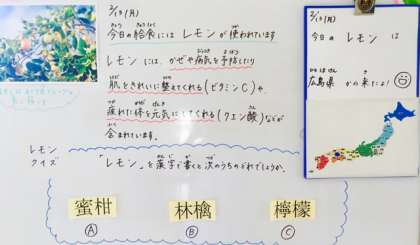 2/19(月)
今日の給食にはレモンが使われています
レモンには、かぜや病気を予防したり
肌をきれいに整えてくれる(ビタミンC)や、
疲れた体を元気にしてくれる(クエン酸)などが
含まれています。
レモン
クイズ
「レモン」を漢字で書くと次のうちのどれでしょうか。
蜜柑
林檎
檸檬
A
B
C
2/19(月)
今日の レモン は
広島県から来たよ!